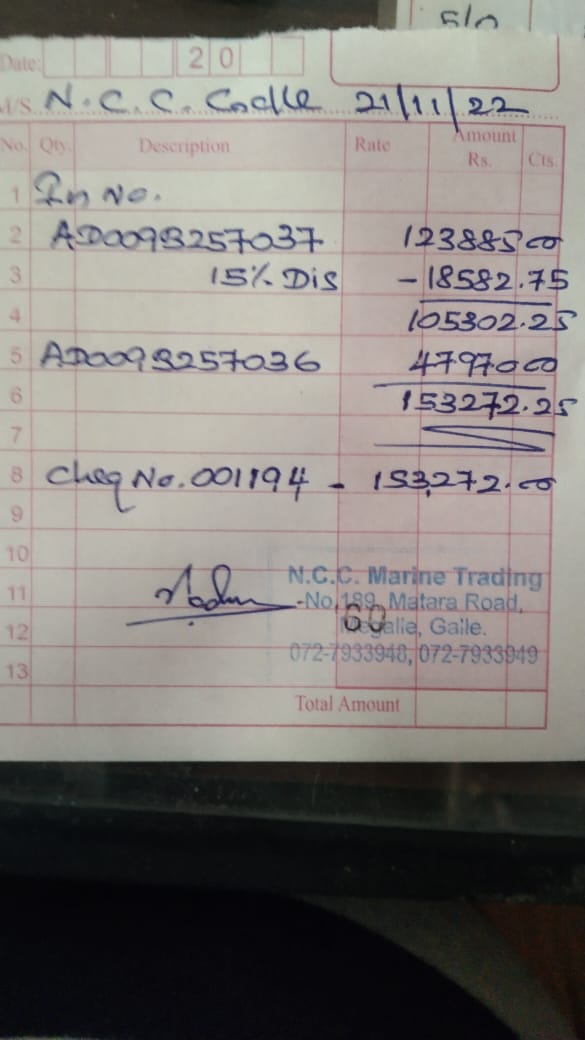 5/0
Date: 20
M/S. N.C.C. Galle 21/11/22
No. Qty. Description Rate Amount Rs. Cts.
1 In No.
2 AD0093257037 123885 00
3 15% Dis - 18582.75
4 105302.25
5 AD0093257036 47970 00
6 153272.25
7
8 Cheq No. 001194 - 153,272.00
9
10
N.C.C. Marine Trading
11 No,189, Matara Road,
12 60 Galle.
072-7933948, 072-7933949
13
Total Amount